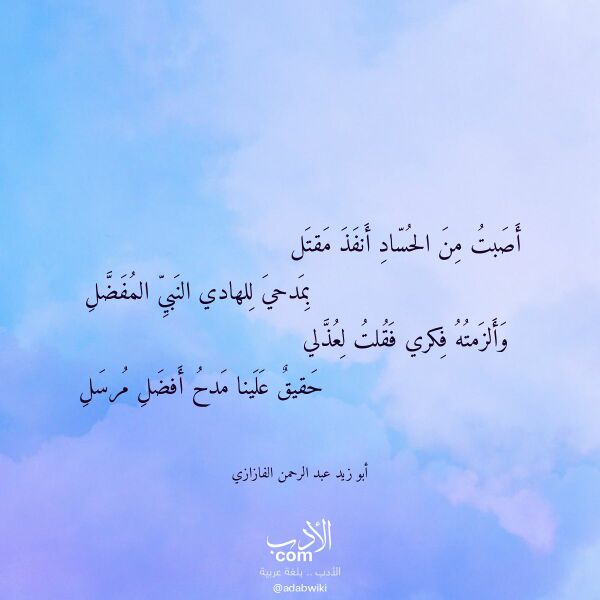 أَصَبتُ مِنَ الحُسّادِ أَنفَذَ مَقتَل
بِمَدحيَ لِلهادي النَبِيِّ المُفَضَّلِ
وَأَلزَمتُهُ فِكري فَقُلتُ لِعُذَّلي
حَقيقٌ عَلَينا مَدحُ أَفضَلِ مُرسَلِ
أبو زيد عبد الرحمن الفازازي
الأدب
com
الأدب .. بلغة عربية
@adabwiki